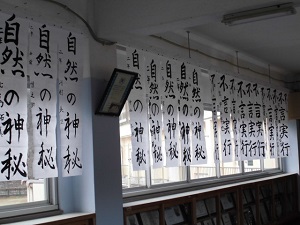 自然の神秘
自然の神秘
自然の神秘
自然の神秘
自然の神秘
自然の神秘
自然の神秘
不言実行
不言実行
不言実行
不言実行
不言実行
不言実行
不言実行